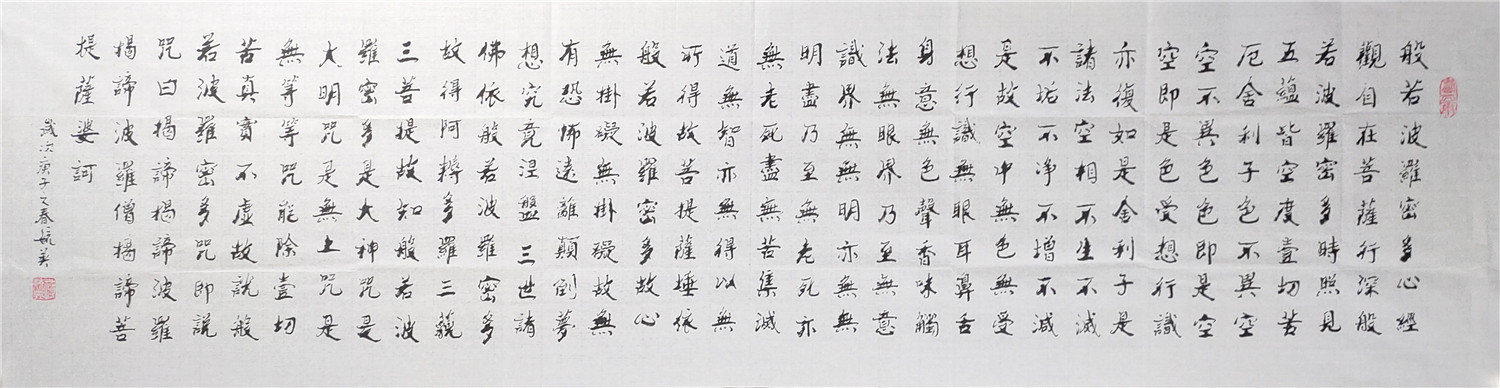 般若波羅密多心經
觀自在菩薩行深般
若波羅密多時照見
五蘊皆空度壹切苦
厄舍利子色不異空
空不異色色即是空
空即是色受想行識
亦復如是舍利子是
諸法空相不生不滅
不垢不净不增不减
是故空中無色無受
想行識無眼耳鼻舌
身意無色聲香味觸
法無眼界乃至無意
識界無無明亦無無
明盡乃至無老死亦
無老死盡無苦集滅
道無智亦無得以無
所得故菩提薩埵依
般若波羅密多故心
無掛礙無掛礙故無
有恐怖遠離顛倒夢
想究竟涅盤三世諸
佛依般若波羅密多
故得阿耨多羅三藐
三菩提故知般若波
羅密多是大神咒是
大明咒是無上咒是
無等等咒能除壹切
苦真實不虛故說般
若波羅密多咒即說
咒曰揭諦揭諦波羅
揭諦波羅僧揭諦菩
提薩婆訶
歲次庚子之春